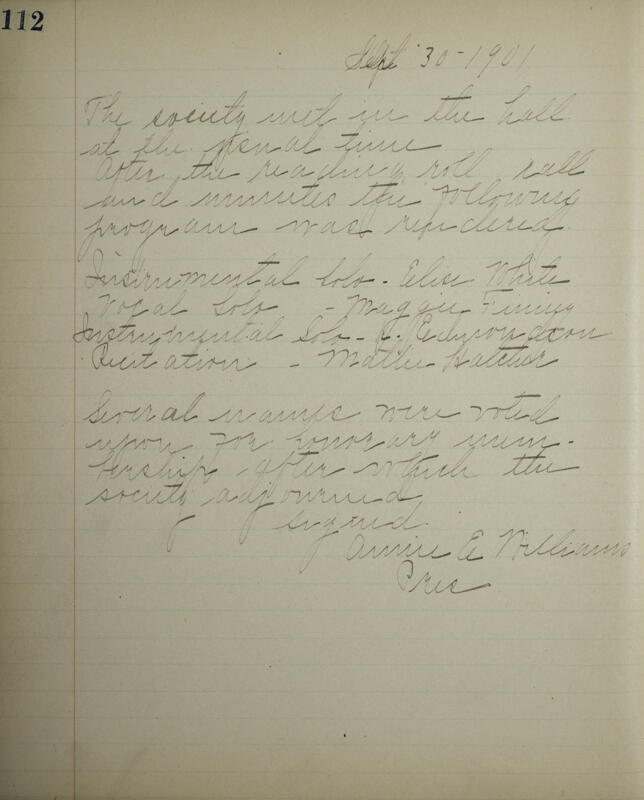 112
Sept 30-1901
The society met in the hall
at the usual time
After the reading roll call
and minutes the following
program was rendered
Instrumental Solo - Elise White
Vocal Solo - Maggie
Instrumental Solo -
Recitation - Mattie Hatcher
Several names were voted
upon for honorary mem-
bership after which the
society adjourned
signed.
Annie E Williams
Pres